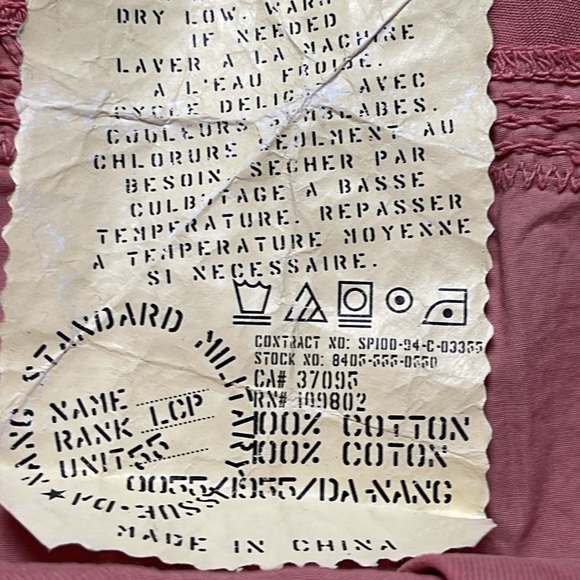 DRY LOW. WARM
IF NEEDED
LAVER A LA MACHINE
A L'EAU FROIDE.
CYCLE DELICAT AVEC
COULEURS SEMBLABES.
CHLORURE SEULMENT AU
BESOIN. SECHER PAR
CULBUTAGE A BASSE
TEMPERATURE. REPASSER
A TEMPERATURE MOYENNE
SI NECESSAIRE.
STANDARD MILITARY
CONTRACT NO: SP100-94-C-03355
STOCK NO: 8405-555-0550
CA# 37095
RN# 109802
NAME
RANK LCP
UNIT 55
100% COTTON
100% COTON
0055/1955/DA-NANG
MADE IN CHINA